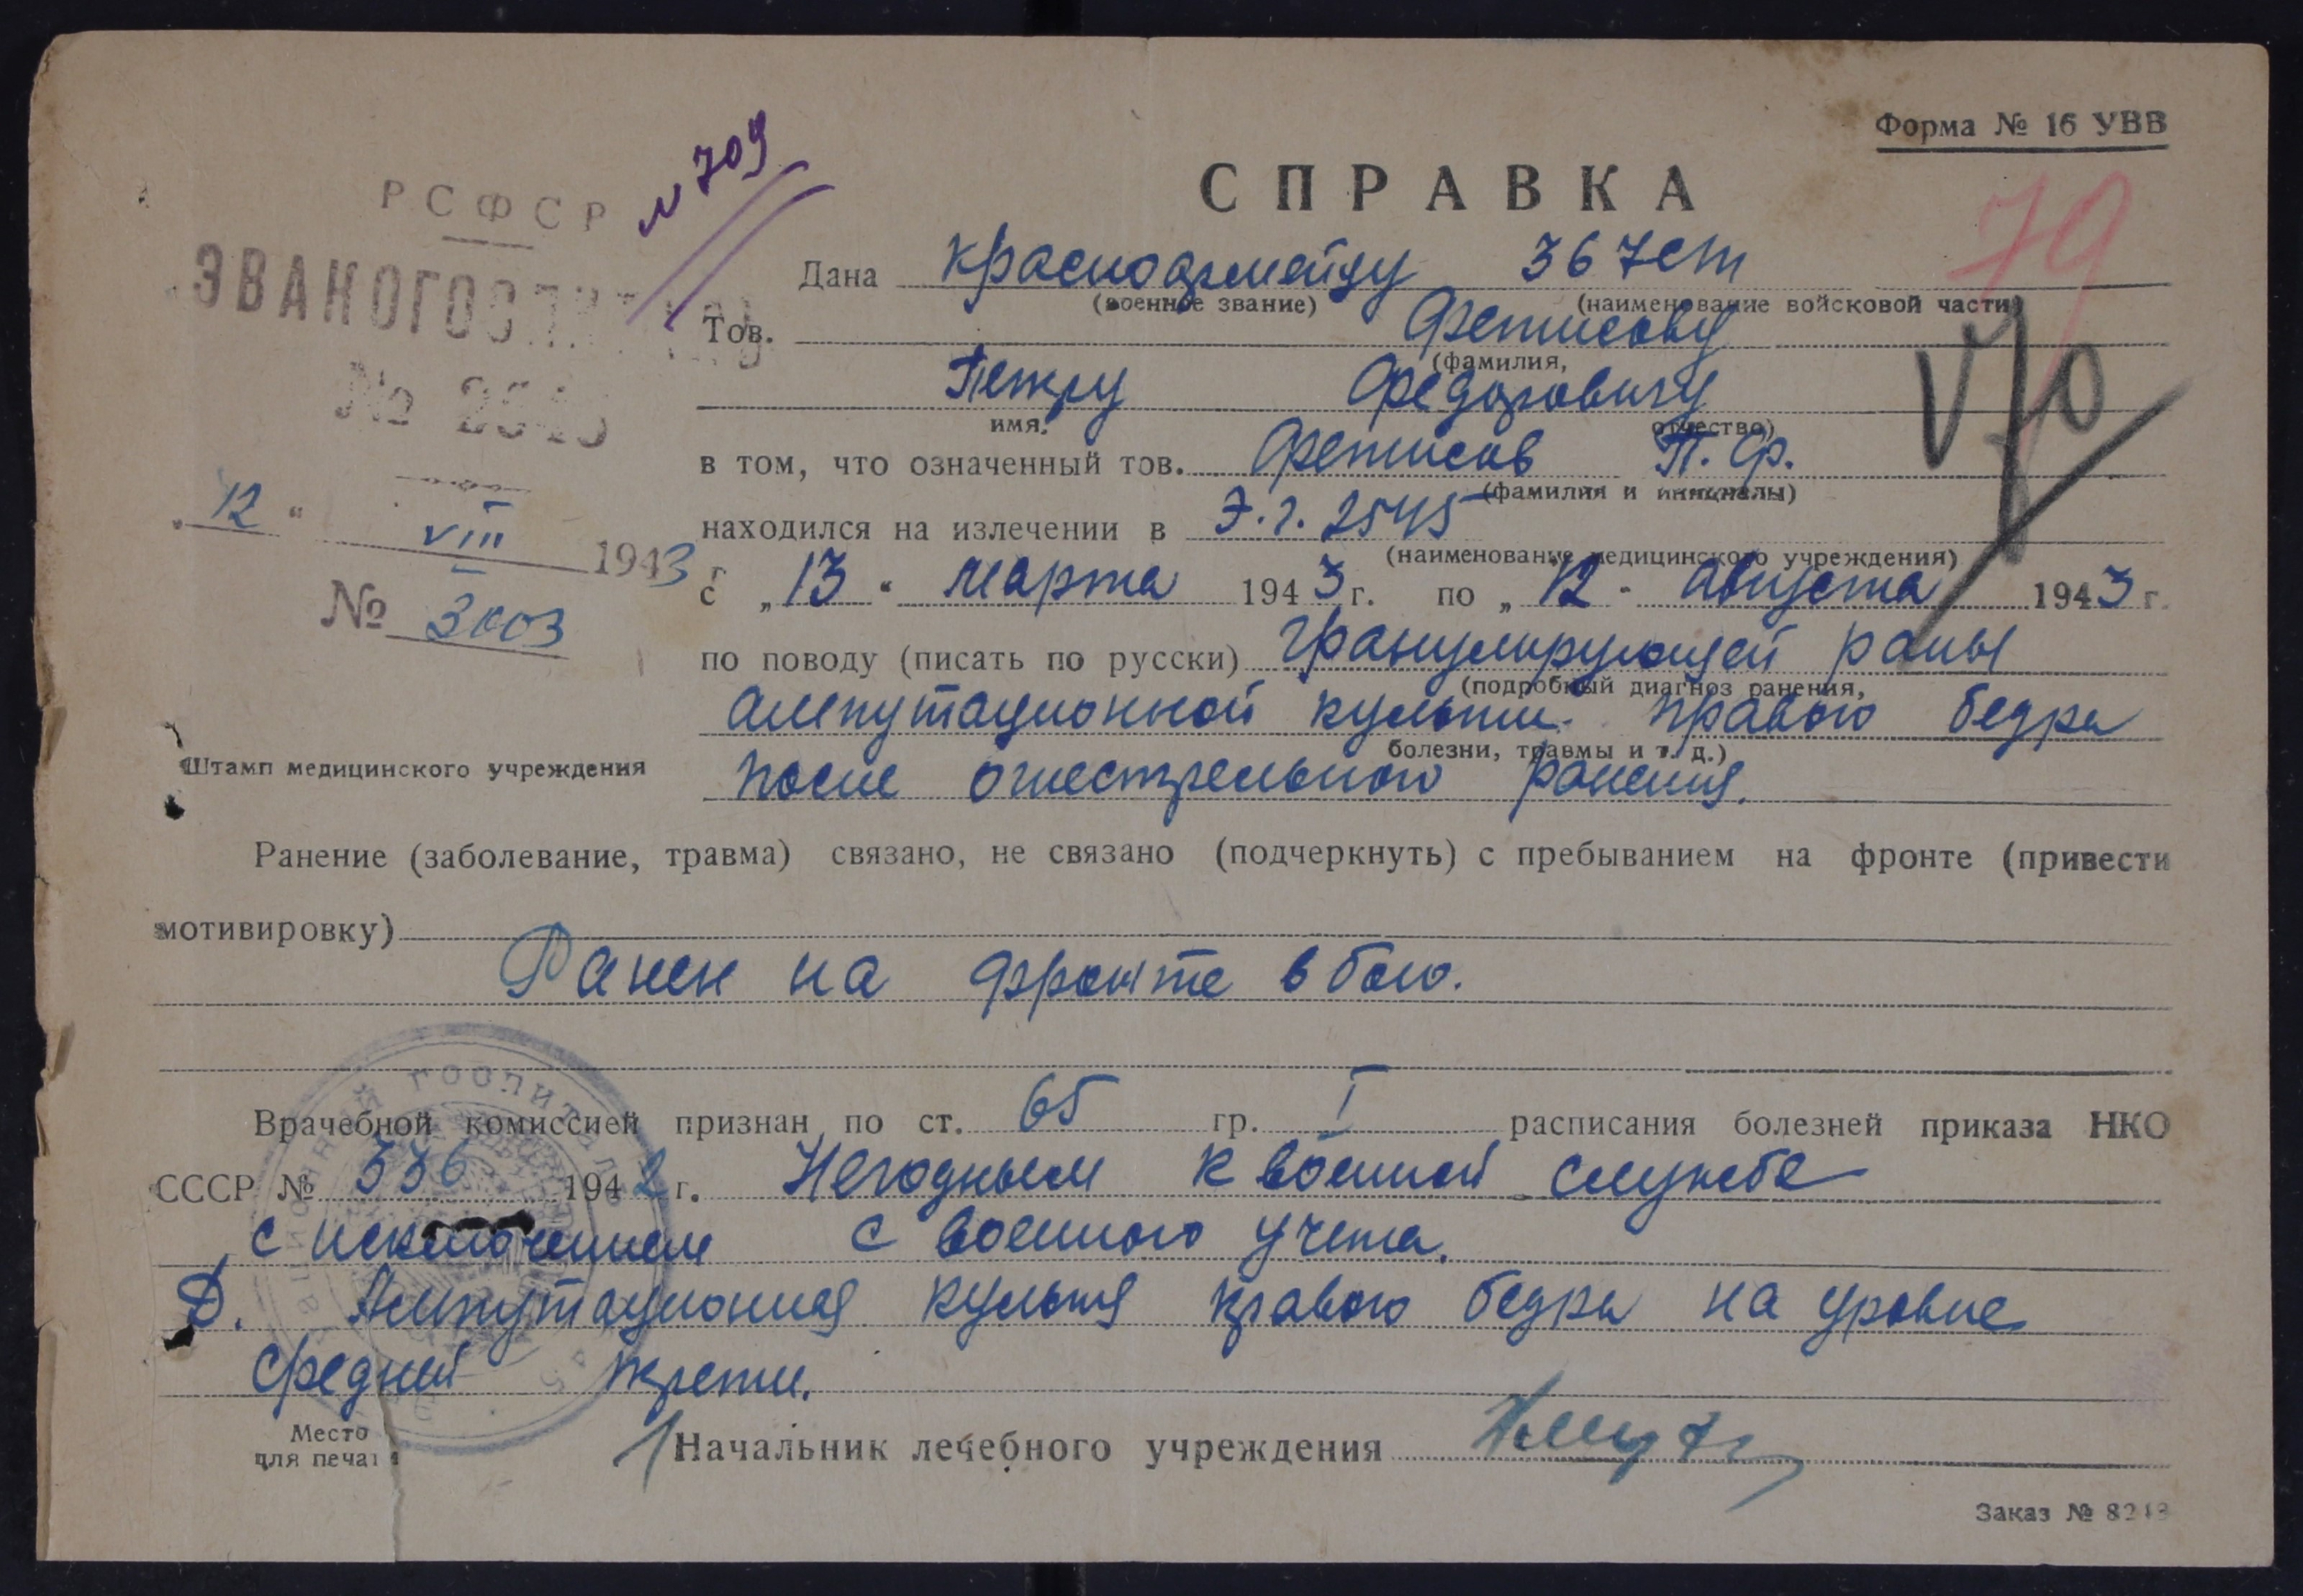 Форма № 16 УВВ
РСФСР
№ 709
СПРАВКА
79
ЭВАКОГОСПИТАЛЬ
Дана красноармейцу 367 сп
(военное звание) (наименование войсковой части)
Тов. Фетисову
(фамилия,
№ 2545
Петру Федоровичу
имя, отчество)
в том, что означенный тов. Фетисов П. Ф.
(фамилия и инициалы)
„12“ VIII 1943 г
находился на излечении в Э.г. 2545
(наименование медицинского учреждения)
№ 3003
с „13“ марта 1943 г. по „12“ августа 1943 г.
по поводу (писать по русски) гранулирующей раны
(подробный диагноз ранения,
ампутационной культи правого бедра
болезни, травмы и т. д.)
Штамп медицинского учреждения
после огнестрельного ранения.
Ранение (заболевание, травма) связано, не связано (подчеркнуть) с пребыванием на фронте (привести
мотивировку)
Ранен на фронте в бою.
Врачебной комиссией признан по ст. 65 гр. I расписания болезней приказа НКО
СССР № 336 1942 г. Негодным к военной службе
с исключением с военного учета.
Д. Ампутационная культя правого бедра на уровне
средней трети.
Место
для печати
Начальник лечебного учреждения
Заказ № 8243